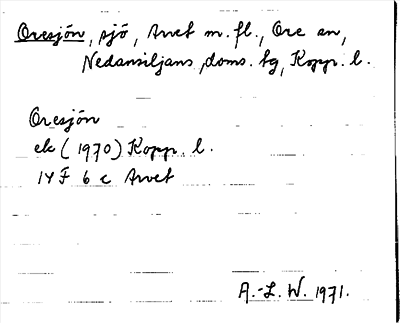 Oresjön, sjö, Arvet m.fl., Ore sn,
Nedansiljans doms. tg, Kopp. l.
Oresjön
ek (1970) Kopp. l.
14 F 6 c Arvet
A.-L. W. 1971.